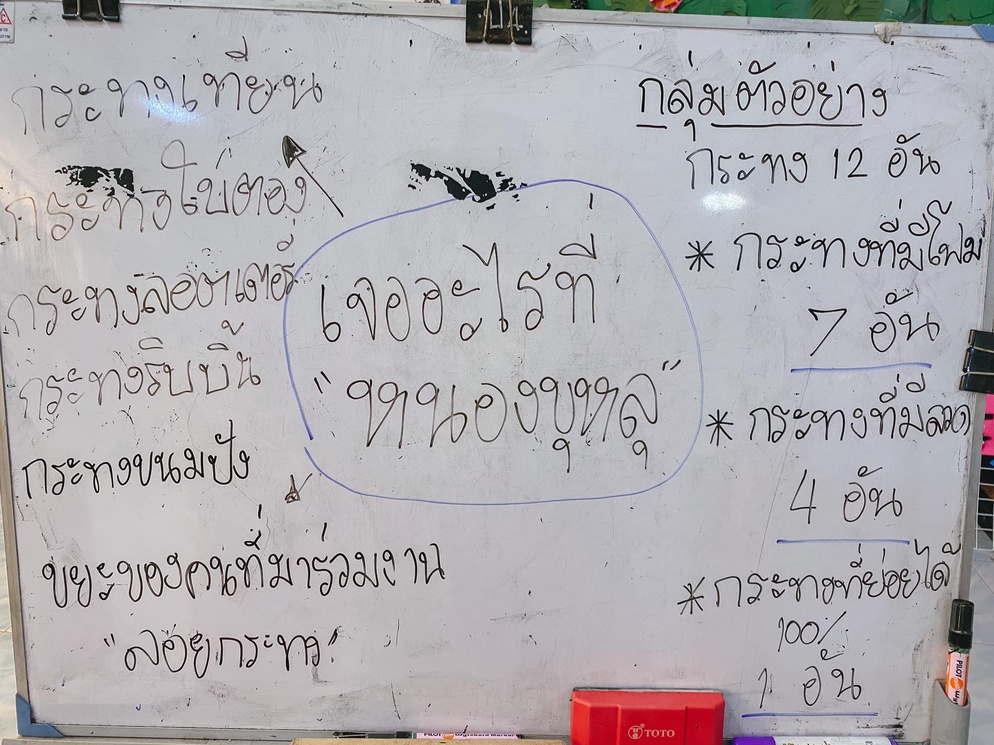 กระทงเทียน
กระทงใบตอง
กระทงลอตเตอรี่
กระทงริบบิ้น
กระทงขนมปัง
ขยะของคนที่มาร่วมงาน
"ลอยกระทง"
เจออะไรที่
"หนองขุหลุ"
กลุ่มตัวอย่าง
กระทง 12 อัน
* กระทงที่มีโฟม
7 อัน
* กระทงที่มีลวด
4 อัน
* กระทงที่ย่อยได้
100%
1 อัน
TOTO
PILOT
PILOT